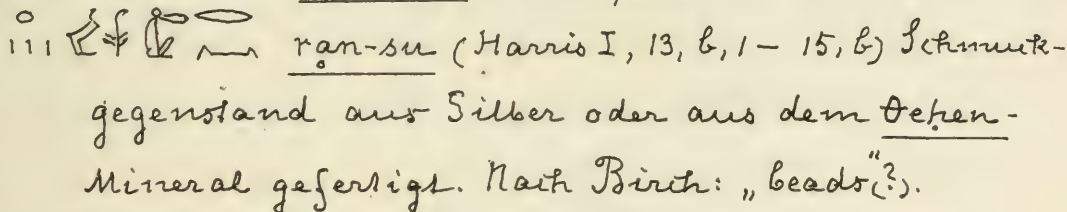 rạn-su (Harris I, 13, b, 1 - 15, b) Schmuck-
gegenstand aus Silber oder aus dem θeḥen-
Mineral gefertigt. Nach Birch: „beads"(?).